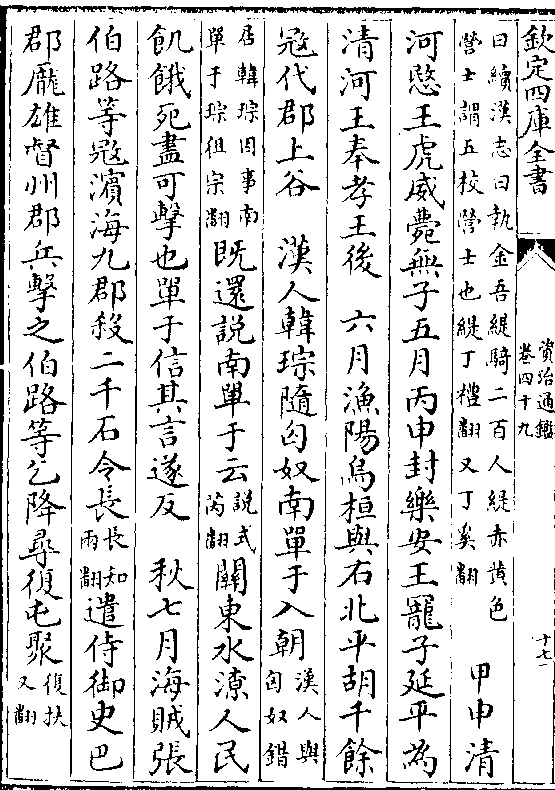 欽定四庫全書
資治通鑑
卷四十九
十七
曰續漢志曰執金吾緹騎二百人緹赤黄色
營士謂五校營士也緹丁禮翻又丁奚翻
甲申清
河愍王虎威薨無子五月丙申封樂安王寵子延平為
清河王奉孝王後 六月漁陽烏桓與右北平胡千餘
冦代郡上谷 漢人韓琮隨匈奴南單于入朝
漢人與
匈奴錯
居韓琮因事南
單于琮徂宗翻
既還説南單于云
説式
芮翻
關東水潦人民
飢餓死盡可擊也單于信其言遂反 秋七月海賊張
伯路等冦濱海九郡殺二千石令長
長知
兩翻
遣侍御史巴
郡龎雄督州郡兵擊之伯路等乞降尋復屯聚
復扶
又翻